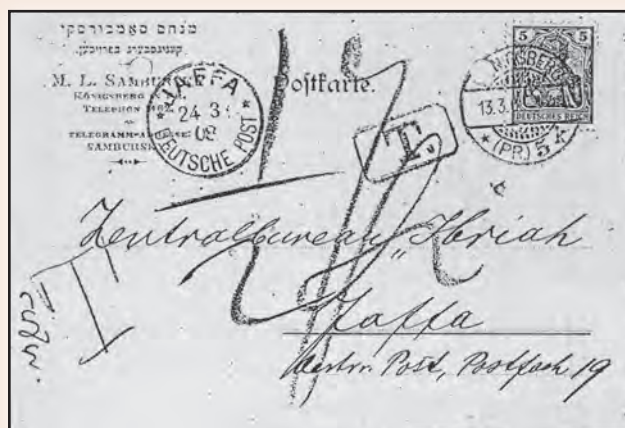 מנחם סאמבורסקי
קעניגסבערג בפרייסען.
M. L. SAMBUR
KÖNIGSBERG
TELEPHON
TELEGRAMM-ADRESSE:
SAMBURSK
* JAFFA *
24 3
08
DEUTSCHE POST
Postkarte.
T.
5 5
DEUTSCHES REICH
13.3.
* (PR.) 5 *
Zentralbureau „Ibriah
Jaffa
Oestrr. Post, Postfach 19